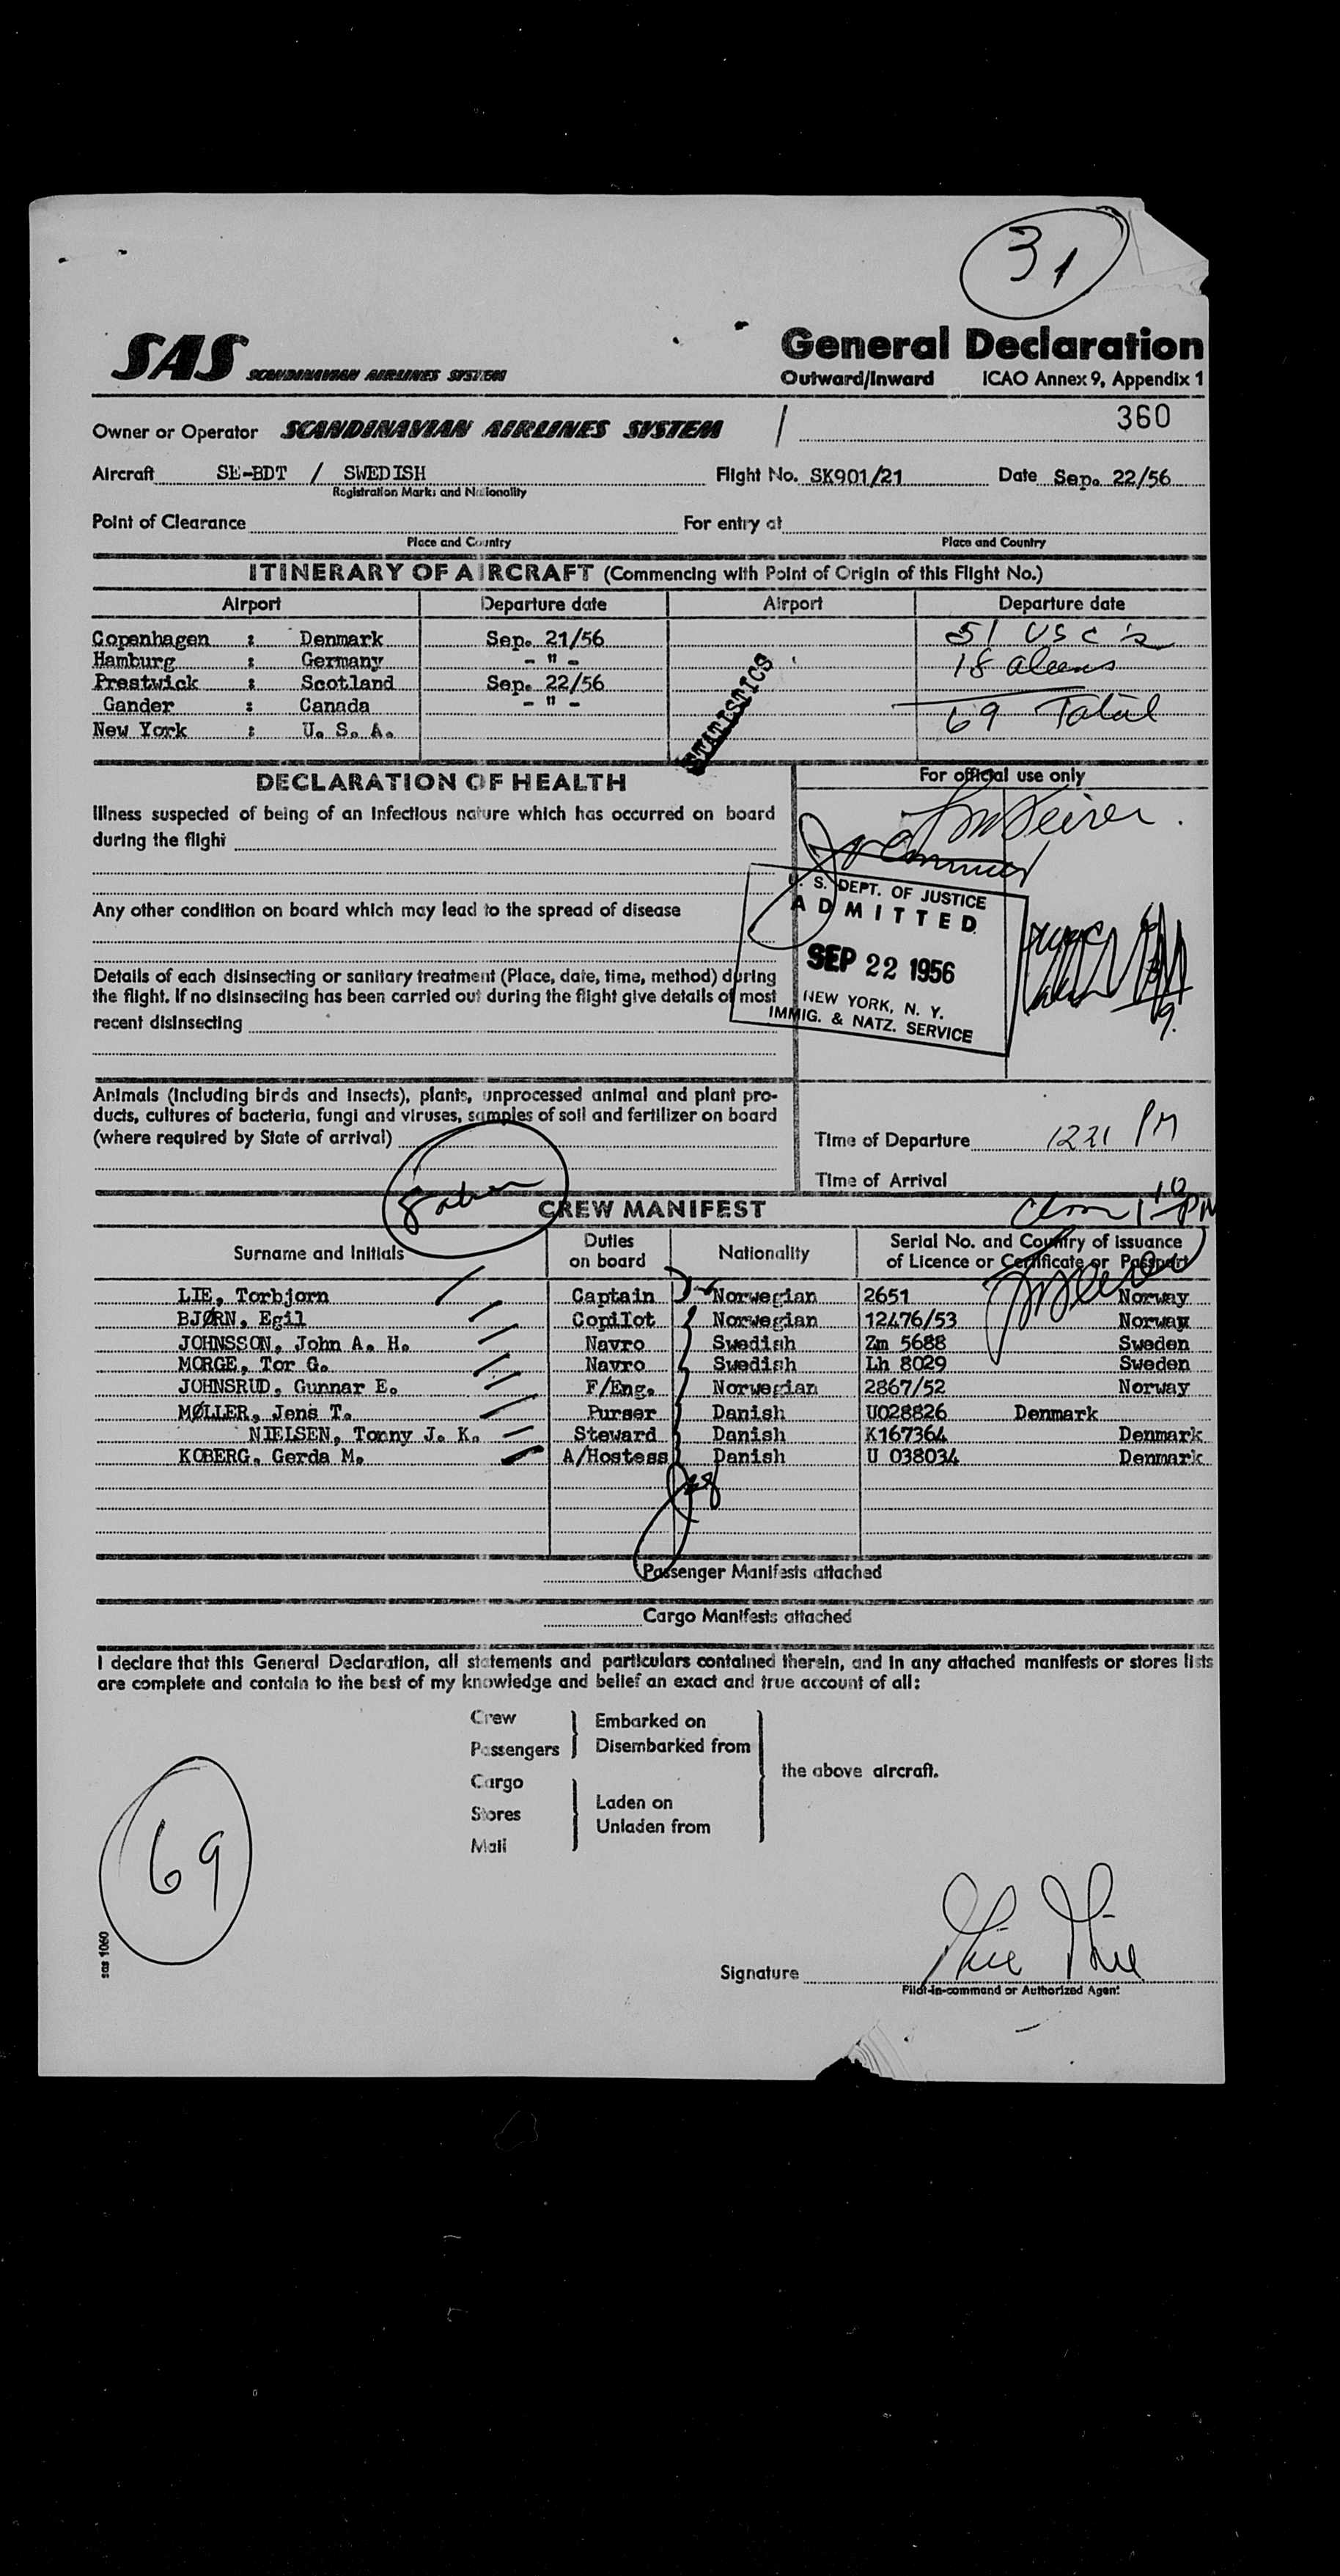 31
SAS SCANDINAVIAN AIRLINES SYSTEM
General Declaration
Outward/Inward ICAO Annex 9, Appendix 1
360
Owner or Operator SCANDINAVIAN AIRLINES SYSTEM /
Aircraft SE-BDT / SWEDISH Flight No. SK901/21 Date Sep. 22/56
Registration Marks and Nationality
Point of Clearance For entry at
Place and Country Place and Country
ITINERARY OF AIRCRAFT (Commencing with Point of Origin of this Flight No.)
Airport Departure date Airport Departure date
Copenhagen : Denmark Sep. 21/56 51 USC's
Hamburg : Germany - " - 18 aliens
Prestwick : Scotland Sep. 22/56
Gander : Canada - " - 69 Total
New York : U. S. A.
STATISTICS
DECLARATION OF HEALTH
For official use only
Illness suspected of being of an infectious nature which has occurred on board
during the flight
Any other condition on board which may lead to the spread of disease
Details of each disinsecting or sanitary treatment (Place, date, time, method) during
the flight. If no disinsecting has been carried out during the flight give details of most
recent disinsecting
U. S. DEPT. OF JUSTICE
ADMITTED
SEP 22 1956
NEW YORK, N. Y.
IMMIG. & NATZ. SERVICE
Animals (including birds and insects), plants, unprocessed animal and plant pro-
ducts, cultures of bacteria, fungi and viruses, samples of soil and fertilizer on board
(where required by State of arrival)
Time of Departure 1221 PM
Time of Arrival
CREW MANIFEST
Surname and Initials Duties on board Nationality Serial No. and Country of issuance of Licence or Certificate or Passport
LIE, Torbjorn Captain Norwegian 2651 Norway
BJØRN, Egil Copilot Norwegian 12476/53 Norway
JOHNSSON, John A. H. Navro Swedish Zm 5688 Sweden
MORGE, Tor G. Navro Swedish Lh 8029 Sweden
JOHNSRUD, Gunnar E. F/Eng. Norwegian 2867/52 Norway
MØLLER, Jens T. Purser Danish U028826 Denmark
NIELSEN, Tonny J. K. Steward Danish K167364 Denmark
KOBERG, Gerda M. A/Hostess Danish U 038034 Denmark
Passenger Manifests attached
Cargo Manifests attached
I declare that this General Declaration, all statements and particulars contained therein, and in any attached manifests or stores lists
are complete and contain to the best of my knowledge and belief an exact and true account of all:
Crew Embarked on
Passengers Disembarked from
the above aircraft.
Cargo
Stores Laden on
Unladen from
Mail
69
sas 1060
Signature
Pilot-in-command or Authorized Agent